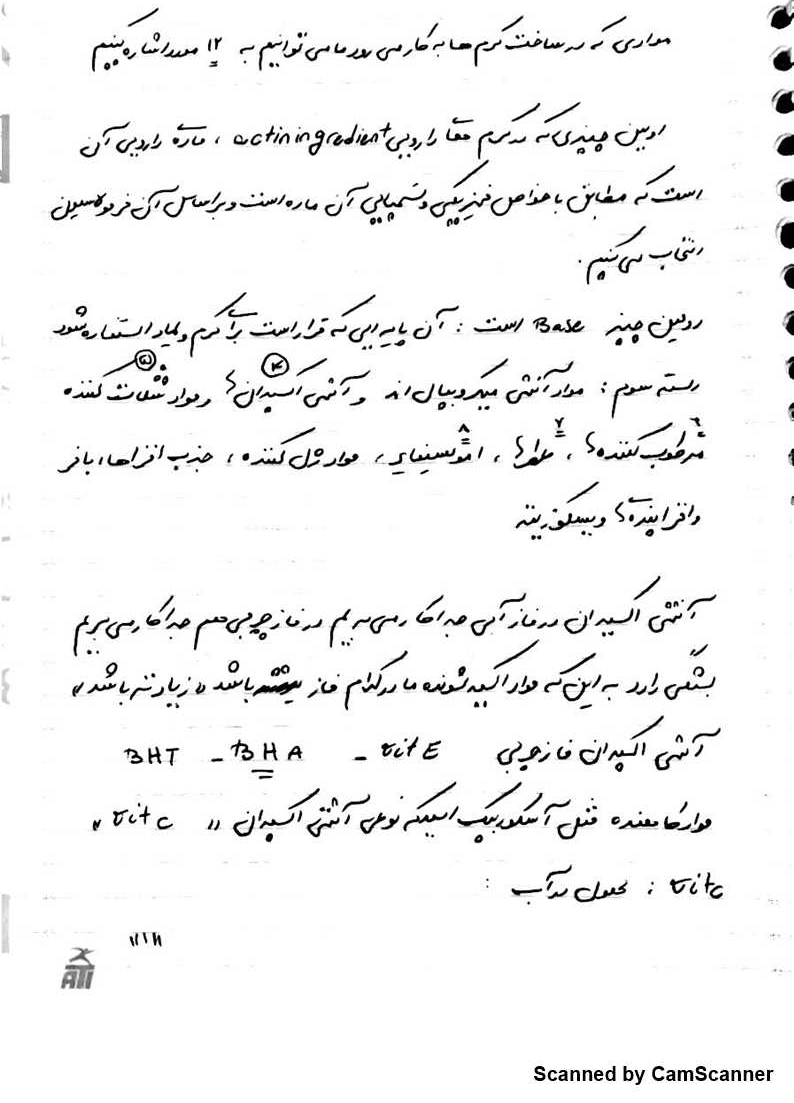 مواردی که در ساخت کرم ها به کار می رود ما می توانیم به ۱۲ مورد اشاره کنیم
اولین چیزی که در کرم دارویی actin ingredient ، ماده دارویی آن
است که مطابق با خواص فیزیکی و شیمیایی آن ماده است و براساس آن فرمولاسیون
انتخاب می کنیم .
دومین چیز Base است : آن پایه ایی که قرار است برای کرم و پماد استفاده شود
دسته سوم : مواد آنتی میکروبیال اند و آنتی اکسیدان ها ④ و مواد شلات کننده ⑤
مرطوب کننده ها ۶ ، عطرها ۷ ، امولسیفایر ۸ ، مواد ژل کننده ، جذب افزاها ، بافر
و افزاینده ها ویسکوزیته
آنتی اکسیدان در فاز آبی جدا کار می بریم در فاز چربی هم جدا کار می بریم
بستگی دارد به این که مواد اکسید شونده ما در کدام فاز باشد « زیادتر باشد »
آنتی اکسیدان فاز چربی vit E - BHA - BHT
مواد کاهنده مثل آسکوربیک اسیدکه نوعی آنتی اکسیدان « vit c »
vit c : محلول در آب :
ATI
Scanned by CamScanner